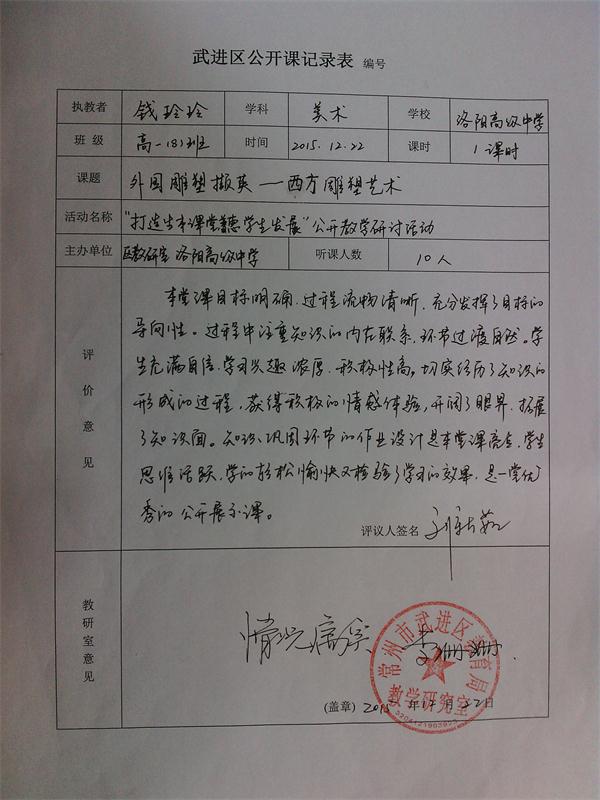 武进区公开课记录表 编号
执教者 钱玲玲 学科 美术 学校 洛阳高级中学
班 级 高一(8)班 时间 2015.12.22 课时 1课时
课题 外国雕塑撷英——西方雕塑艺术
活动名称 “打造生本课堂 学生发展”公开教学研讨活动
主办单位 区教研室 洛阳高级中学 听课人数 10人
评价意见
本堂课目标明确,过程流畅清晰,充分发挥了目标的
导向性。过程中注重知识的内在联系,环节过渡自然。学
生充满自信,学习兴趣浓厚,积极性高,切实经历了知识的
形成的过程,获得积极的情感体验,开阔了眼界,拓展
了知识面。知识巩固环节的作业设计是本堂课亮点,学生
思维活跃,学的轻松愉快又检验了学习的效果,是一堂优
秀的公开展示课。
评议人签名
教研室意见
情况属实
常州市武进区教育局
教学研究室
(盖章) 2015年12月22日